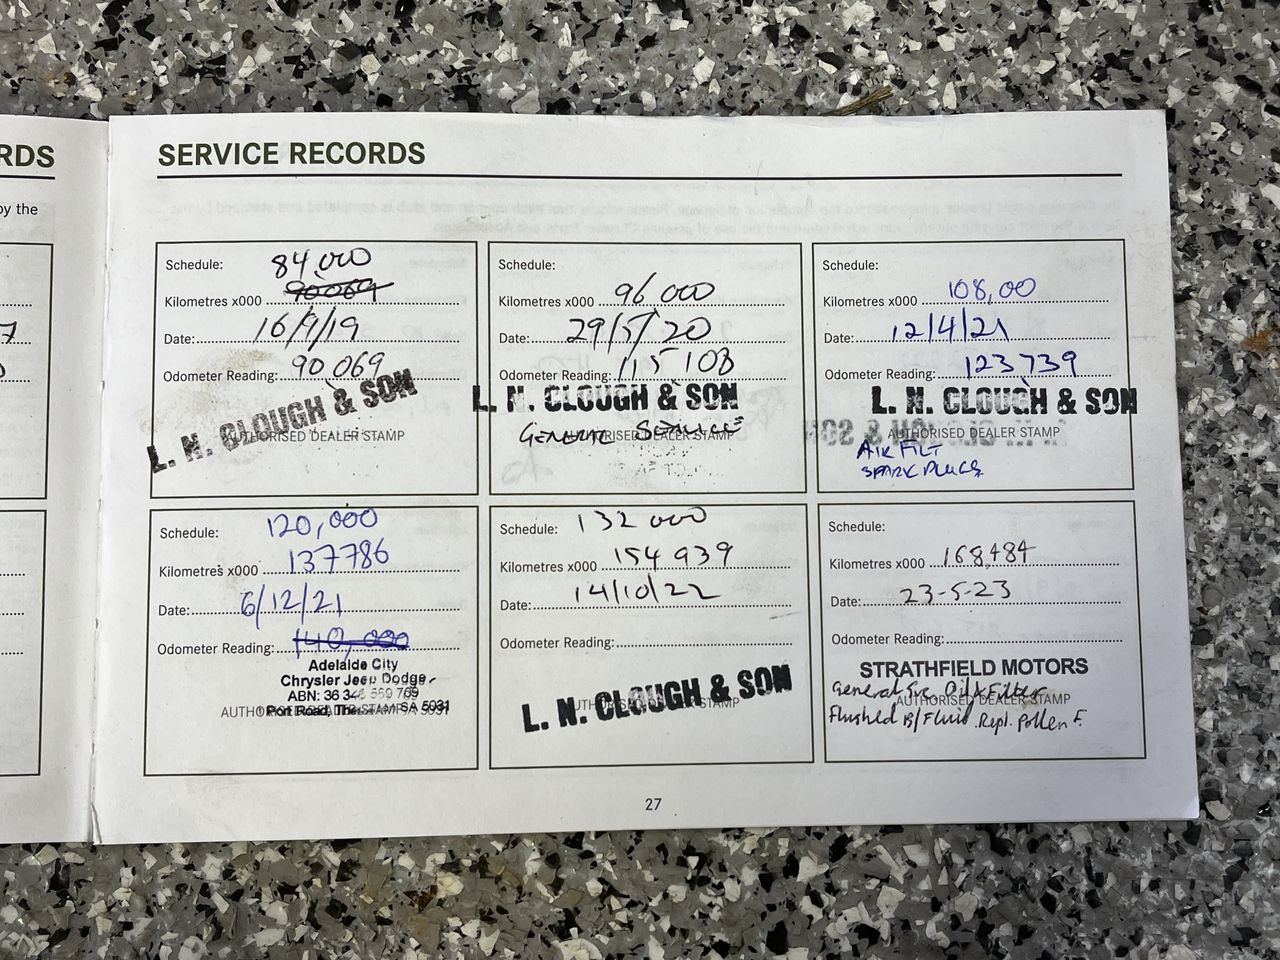 RDS
by the
SERVICE RECORDS
Schedule: 84,000
Kilometres x000 90069
Date: 16/9/19
Odometer Reading: 90,069
L. N. CLOUGH & SON
AUTHORISED DEALER STAMP
Schedule:
Kilometres x000 96,000
Date: 29/5/20
Odometer Reading: 115 108
L. N. CLOUGH & SON
AUTHORISED DEALER STAMP
GENERAL SERVICE
Schedule:
Kilometres x000 108,00
Date: 12/4/21
Odometer Reading: 123739
L. N. CLOUGH & SON
AUTHORISED DEALER STAMP
AIR FILT
SPARK PLUGS
Schedule: 120,000
Kilometres x000 137786
Date: 6/12/21
Odometer Reading: 140,000
Adelaide City
Chrysler Jeep Dodge
ABN: 36 34
Port Road, The SA 5031
Schedule: 132 000
Kilometres x000 154 939
Date: 14/10/22
Odometer Reading:
L. N. CLOUGH & SON
Schedule:
Kilometres x000 168,484
Date: 23-5-23
Odometer Reading:
STRATHFIELD MOTORS
General Svc Oil & Filter
AUTHORISED DEALER STAMP
Flushed B/Fluid. Repl. Pollen F.
27